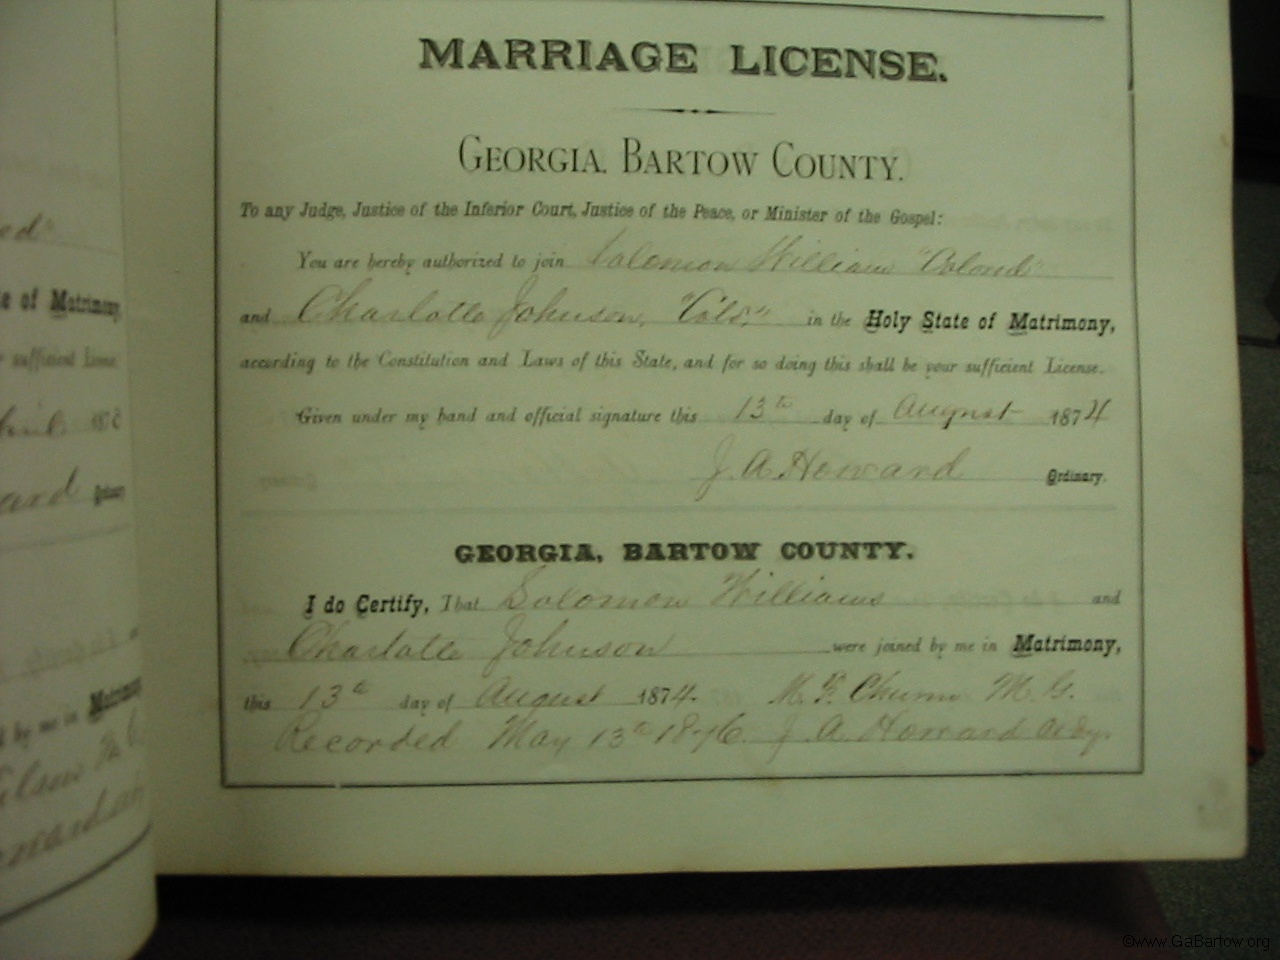 MARRIAGE LICENSE.
GEORGIA, BARTOW COUNTY.
To any Judge, Justice of the Inferior Court, Justice of the Peace, or Minister of the Gospel:
You are hereby authorized to join Solomon William "Colored"
and Charlotte Johnson, "Cold." in the Holy State of Matrimony,
according to the Constitution and Laws of this State, and for so doing this shall be your sufficient License.
Given under my hand and official signature this 13th day of August 1874
J. A. Howard Ordinary.
GEORGIA, BARTOW COUNTY.
I do Certify, That Solomon Williams and
Charlotte Johnson were joined by me in Matrimony,
this 13th day of August 1874. M. G.
Recorded May 13th 1876. J. A. Howard Ordy.
ed"
e of Matrimony,
sufficient License.
187
ard Ordinary
by me in Matrimony
©www.GaBartow.org